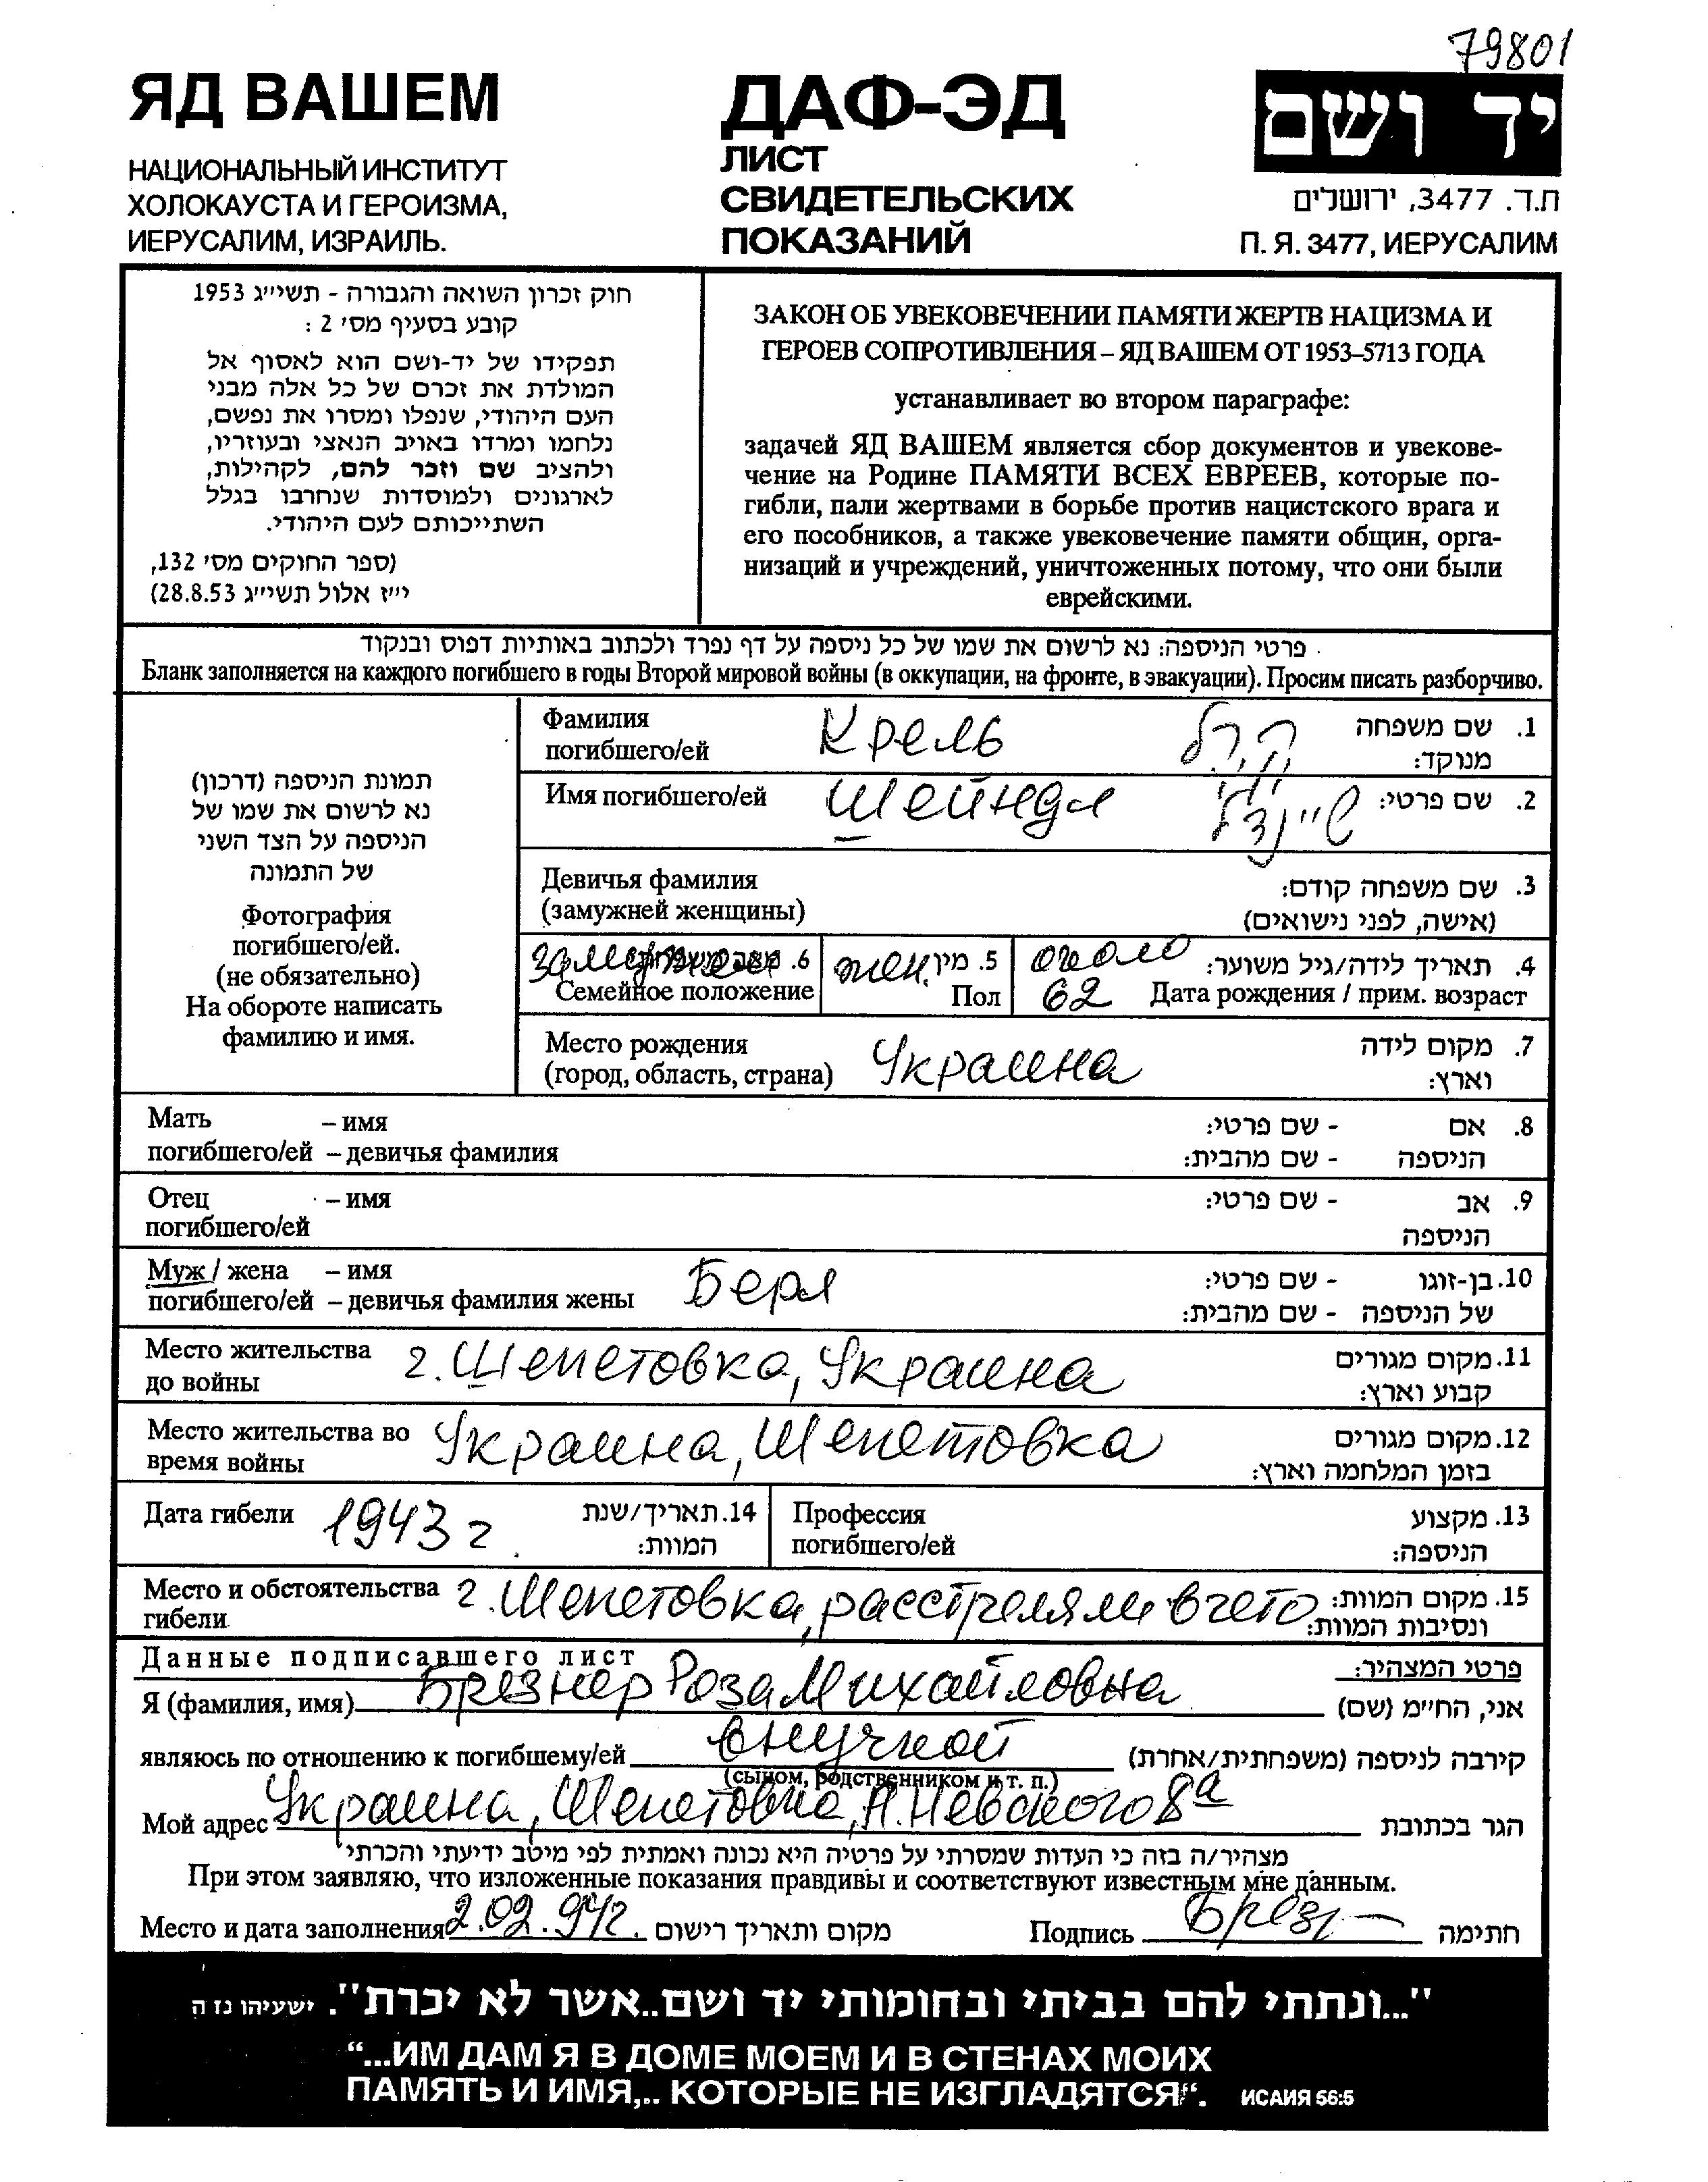 79801
ЯД ВАШЕМ
НАЦИОНАЛЬНЫЙ ИНСТИТУТ
ХОЛОКАУСТА И ГЕРОИЗМА,
ИЕРУСАЛИМ, ИЗРАИЛЬ.
ДАФ-ЭД
ЛИСТ
СВИДЕТЕЛЬСКИХ
ПОКАЗАНИЙ
יד ושם
ת.ד. 3477, ירושלים
П. Я. 3477, ИЕРУСАЛИМ
חוק זכרון השואה והגבורה - תשי״ג 1953
קובע בסעיף מס׳ 2 :
תפקידו של יד-ושם הוא לאסוף אל
המולדת את זכרם של כל אלה מבני
העם היהודי, שנפלו ומסרו את נפשם,
נלחמו ומרדו באויב הנאצי ובעוזריו,
ולהציב שם וזכר להם, לקהילות,
לארגונים ולמוסדות שנחרבו בגלל
השתייכותם לעם היהודי.
(ספר החוקים מס׳ 132,
י״ז אלול תשי״ג 28.8.53)
ЗАКОН ОБ УВЕКОВЕЧЕНИИ ПАМЯТИ ЖЕРТВ НАЦИЗМА И
ГЕРОЕВ СОПРОТИВЛЕНИЯ – ЯД ВАШЕМ ОТ 1953–5713 ГОДА
устанавливает во втором параграфе:
задачей ЯД ВАШЕМ является сбор документов и увекове-
чение на Родине ПАМЯТИ ВСЕХ ЕВРЕЕВ, которые по-
гибли, пали жертвами в борьбе против нацистского врага и
его пособников, а также увековечение памяти общин, орга-
низаций и учреждений, уничтоженных потому, что они были
еврейскими.
פרטי הניספה: נא לרשום את שמו של כל ניספה על דף נפרד ולכתוב באותיות דפוס ובנקוד
Бланк заполняется на каждого погибшего в годы Второй мировой войны (в оккупации, на фронте, в эвакуации). Просим писать разборчиво.
תמונת הניספה (דרכון)
נא לרשום את שמו של
הניספה על הצד השני
של התמונה
Фотография
погибшего/ей.
(не обязательно)
На обороте написать
фамилию и имя.
Фамилия Крель קרל 1. שם משפחה
погибшего/ей מנוקד:
Имя погибшего/ей Шейндл שיינדל 2. שם פרטי:
Девичья фамилия 3. שם משפחה קודם:
(замужней женщины) (אישה, לפני נישואים)
замужем 6. מצב משפחתי жен. 5. מין около 4. תאריך לידה/גיל משוער:
Семейное положение Пол 62 Дата рождения / прим. возраст
Место рождения Украина 7. מקום לידה
(город, область, страна) וארץ:
Мать – имя 8. אם - שם פרטי:
погибшего/ей – девичья фамилия הניספה - שם מהבית:
Отец – имя 9. אב - שם פרטי:
погибшего/ей הניספה
Муж / жена – имя Берл 10. בן-זוגו - שם פרטי:
погибшего/ей – девичья фамилия жены של הניספה - שם מהבית:
Место жительства г. Шепетовка, Украина 11. מקום מגורים
до войны קבוע וארץ:
Место жительства во Украина, Шепетовка 12. מקום מגורים
время войны בזמן המלחמה וארץ:
Дата гибели 1943 г. 14. תאריך/שנת Профессия 13. מקצוע
המוות: погибшего/ей הניספה:
Место и обстоятельства г. Шепетовка, расстреляли в гето 15. מקום המוות:
гибели ונסיבות המוות:
Данные подписавшего лист פרטי המצהיר:
Я (фамилия, имя) Брезнер Роза Михайловна אני, החי״מ (שם)
являюсь по отношению к погибшему/ей внучкой קירבה לניספה (משפחתית/אחרת)
(сыном, родственником и т. п.)
Мой адрес Украина, Шепетовка, А. Невского 8а הגר בכתובת
מצהיר/ה בזה כי העדות שמסרתי על פרטיה היא נכונה ואמתית לפי מיטב ידיעתי והכרתי
При этом заявляю, что изложенные показания правдивы и соответствуют известным мне данным.
Место и дата заполнения 2.02.94г. מקום ותאריך רישום Подпись חתימה
"...ונתתי להם בביתי ובחומותי יד ושם..אשר לא יכרת". ישעיהו נז ה
“...ИМ ДАМ Я В ДОМЕ МОЕМ И В СТЕНАХ МОИХ
ПАМЯТЬ И ИМЯ,.. КОТОРЫЕ НЕ ИЗГЛАДЯТСЯ“. ИСАИЯ 56:5